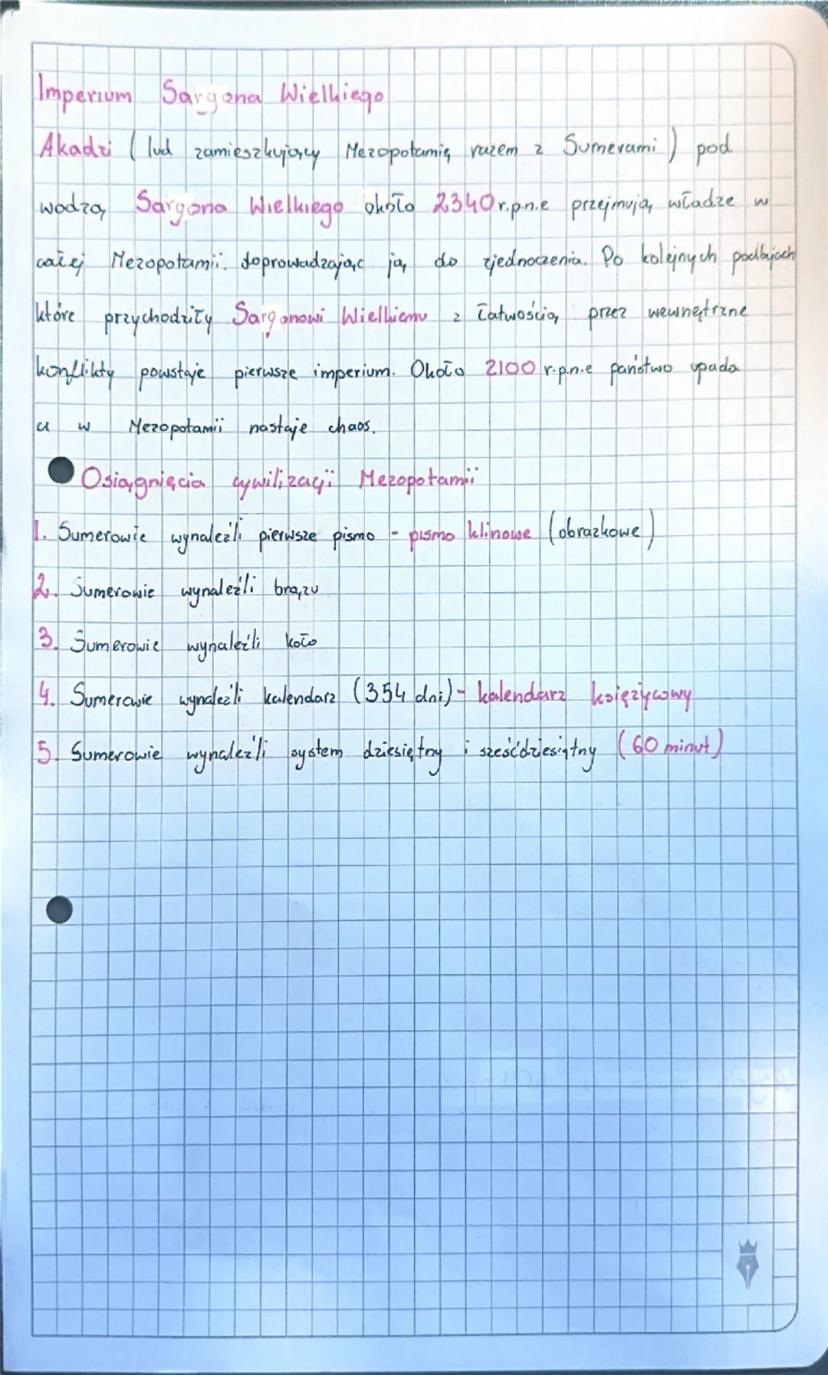 Imperium Sargona Wielkiego
Akadzi (lud zamieszkujący Mezopotamię razem z Sumerami) pod
wodzą Sargona Wielkiego około 2340 r.p.n.e przejmują władze w
całej Mezopotamii. doprowadzając ją do zjednoczenia. Po kolejnych podbojach
które przychodziły Sargonowi Wielkiemu z łatwością przez wewnętrzne
konflikty powstaje pierwsze imperium. Około 2100 r.p.n.e państwo upada
a w Mezopotamii nastaje chaos.
Osiągnięcia cywilizacji Mezopotamii
1. Sumerowie wynaleźli pierwsze pismo - pismo klinowe (obrazkowe)
2. Sumerowie wynaleźli brązu
3. Sumerowie wynaleźli koło
4. Sumerowie wynaleźli kalendarz (354 dni) - kalendarz księżycowy
5. Sumerowie wynaleźli system dziesiętny i sześćdziesiątny (60 minut)